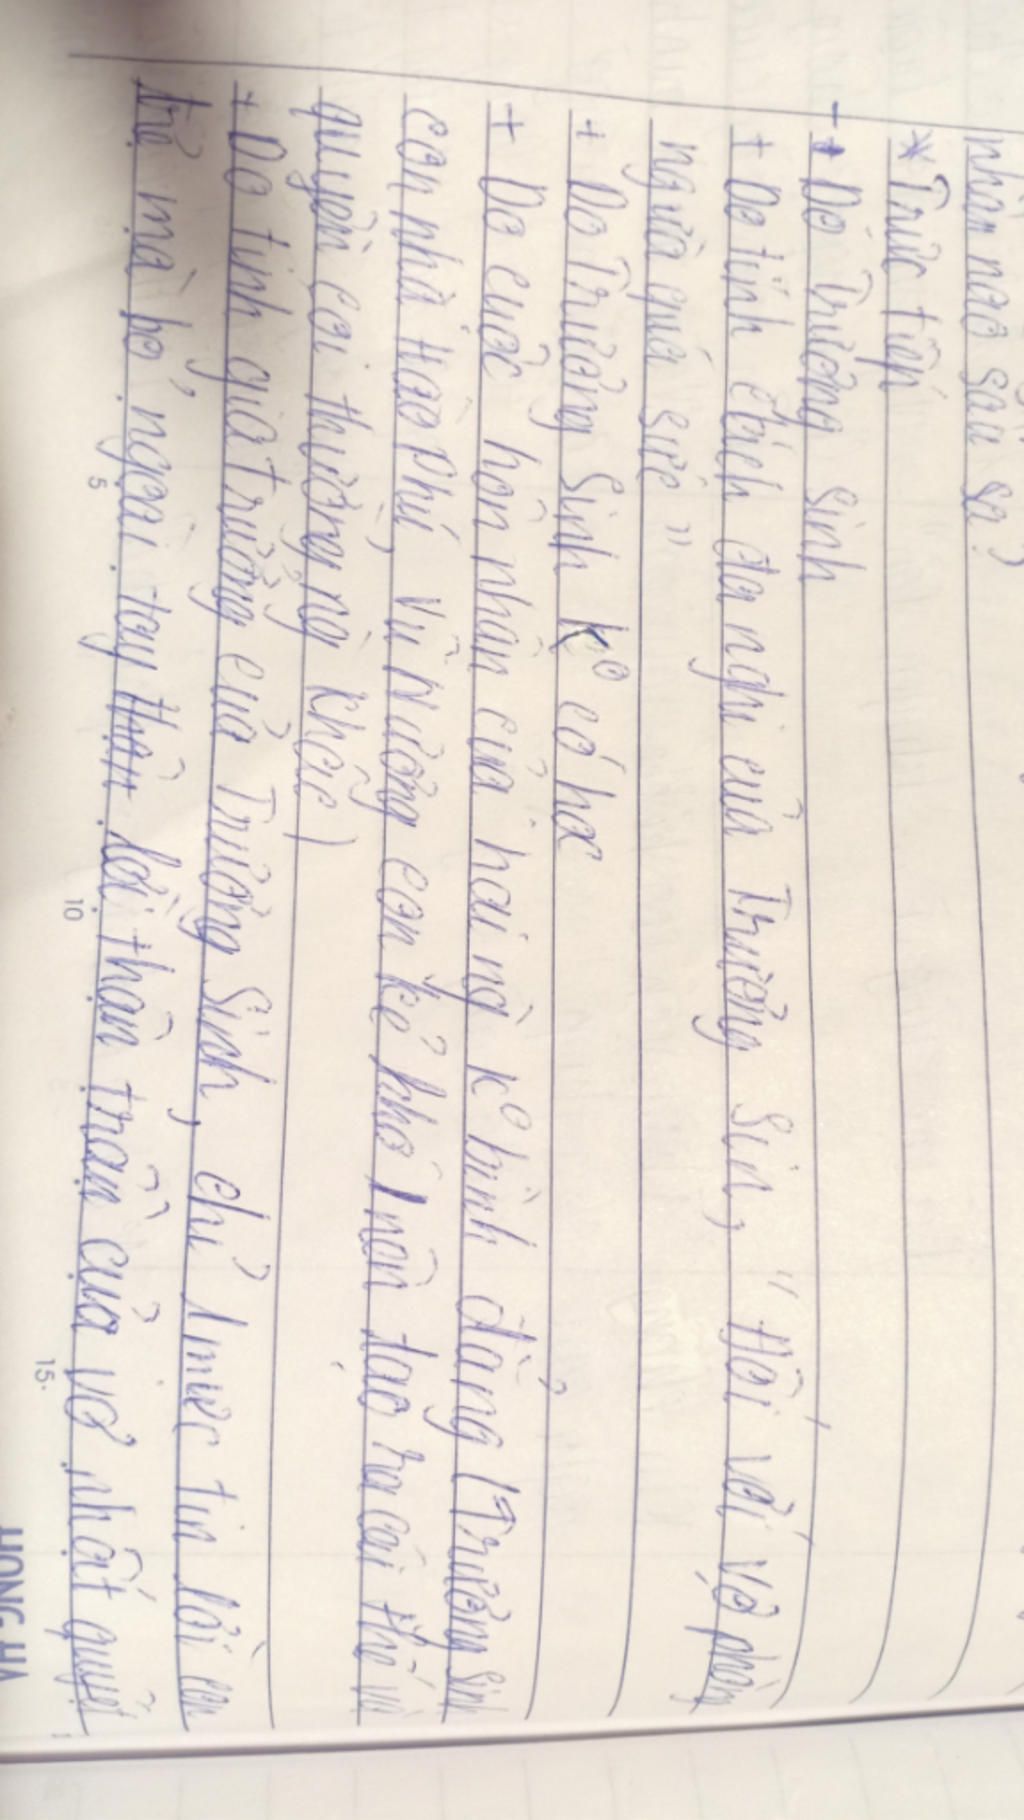 nhân nào gây ra?
* Trực tiếp
- Do Trường Sinh
+ Do tính cách đa nghi của Trường Sin, " Hối với vợ phòng
ngừa quá sức "
+ Do Trường Sinh k⁰ có học
+ Do cuộc hôn nhân của hai ng k⁰ bình đẳng (Trường Sinh
con nhà hào phú, Vũ Nương con kẻ khó) nên tạo ra cái thế và
quyền coi thường ng khác)
+ Do tính gia trưởng của Trường Sinh, chỉ 1 mực tin lời con
trẻ mà bỏ ngoài tay lời thân trần của vợ nhất quyết
5
10
15